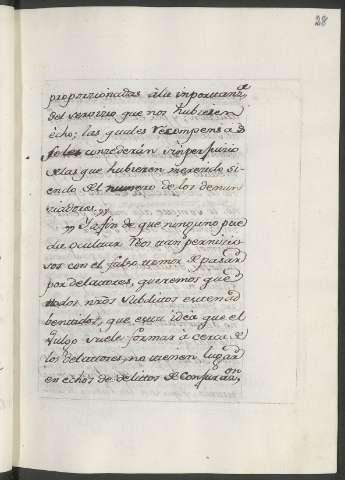 28
proporzionadas à la inportanz.ª
del servizio que nos hubieren
echo; las quales recompensas
se les conzederàn sin perjuizio
de las que hubieren merezido si-
endo del numero de los denun-
ziadores.
Y a fin de que ninguno pue
da ocultar Reos tan pernizio-
sos con el falso temor de pasar
por delatores, queremos que
todos nr̃os subditos esten ad
bertidos, que esta idèa que el
vulgo suele formar à cerca de
los delatores, no tienen lugar
en echos de delitos de Conjurazi.on